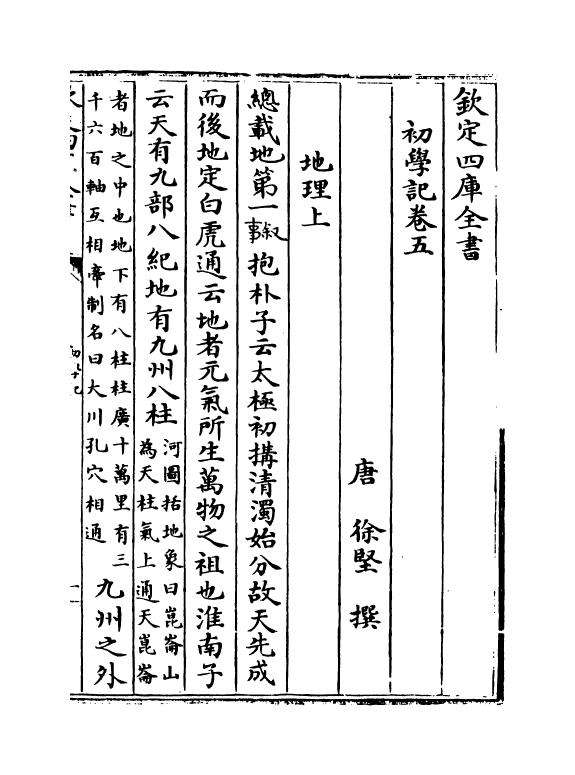 欽定四庫全書
初學記卷五
唐 徐堅 撰
地理上
總載地第一叙事抱朴子云太極初搆清濁始分故天先成
而後地定白虎通云地者元氣所生萬物之祖也淮南子
云天有九部八紀地有九州八柱河圖括地象曰崑崙山為天柱氣上通天崑崙
者地之中也地下有八柱柱廣十萬里有三千六百軸互相牽制名曰大川孔穴相通九州之外